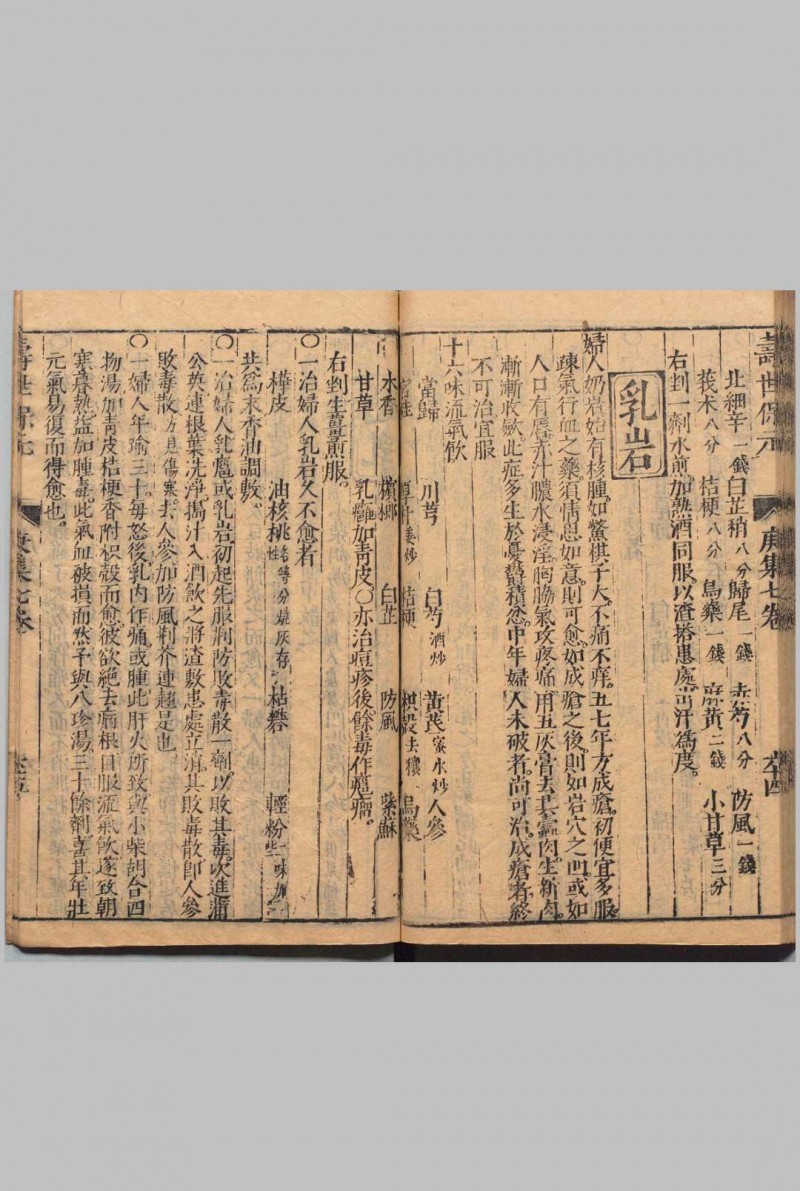 壽世保元 庚集七卷
北細辛一錢 白芷稍八分 歸尾一錢 赤芍八分 防風一錢
莪朮八分 桔梗八分 烏藥一錢 麻黃二錢 小甘草三分
右剉一劑水煎加熱酒同服以渣搽患處出汗爲度
乳岩
婦人奶岩始有核腫如鱉棋子大不痛不痒五七年方成瘡初便宜多服
疎氣行血之藥須情思如意則可愈如成瘡之後則如岩穴之凹或如
人口有唇赤汁膿水浸淫胸脇氣攻疼痛用五灰膏去其蠹肉生新肉
漸漸收斂此症多生於憂鬱積忿中年婦人未破者尚可治成瘡者終
不可治宜服
十六味流氣飲
當歸 川芎 白芍酒炒 黃芪蜜水炒 人參
官桂 厚朴姜炒 桔梗 枳殼去穰 烏藥
木香 檳榔 白芷 防風 紫蘇
甘草 乳癰加青皮○亦治痘疹後餘毒作癰瘤
右剉生薑煎服
○一治婦人乳岩久不愈者
樺皮 油核桃 枯礬 輕粉
共爲末香油調敷
○一治婦人乳癰或乳岩初起先服荊防敗毒散一劑以敗其毒次進蒲
公英連根葉洗淨搗汁入酒飲之將渣敷患處立消其敗毒散卽人參
敗毒散方見傷寒去人參加防風荊芥連翹是也
○一婦人年瑜三十每怒後乳內作痛或腫此肝火所致與小柴胡合四
物湯加青皮桔梗香附枳殼而愈彼欲絕去病根自服流氣飲遂致朝
寒暮熱益加腫毒此氣血破損而然予與八珍湯三十餘劑喜其年壯
元氣易復而得愈也
壽世保元 庚集七卷